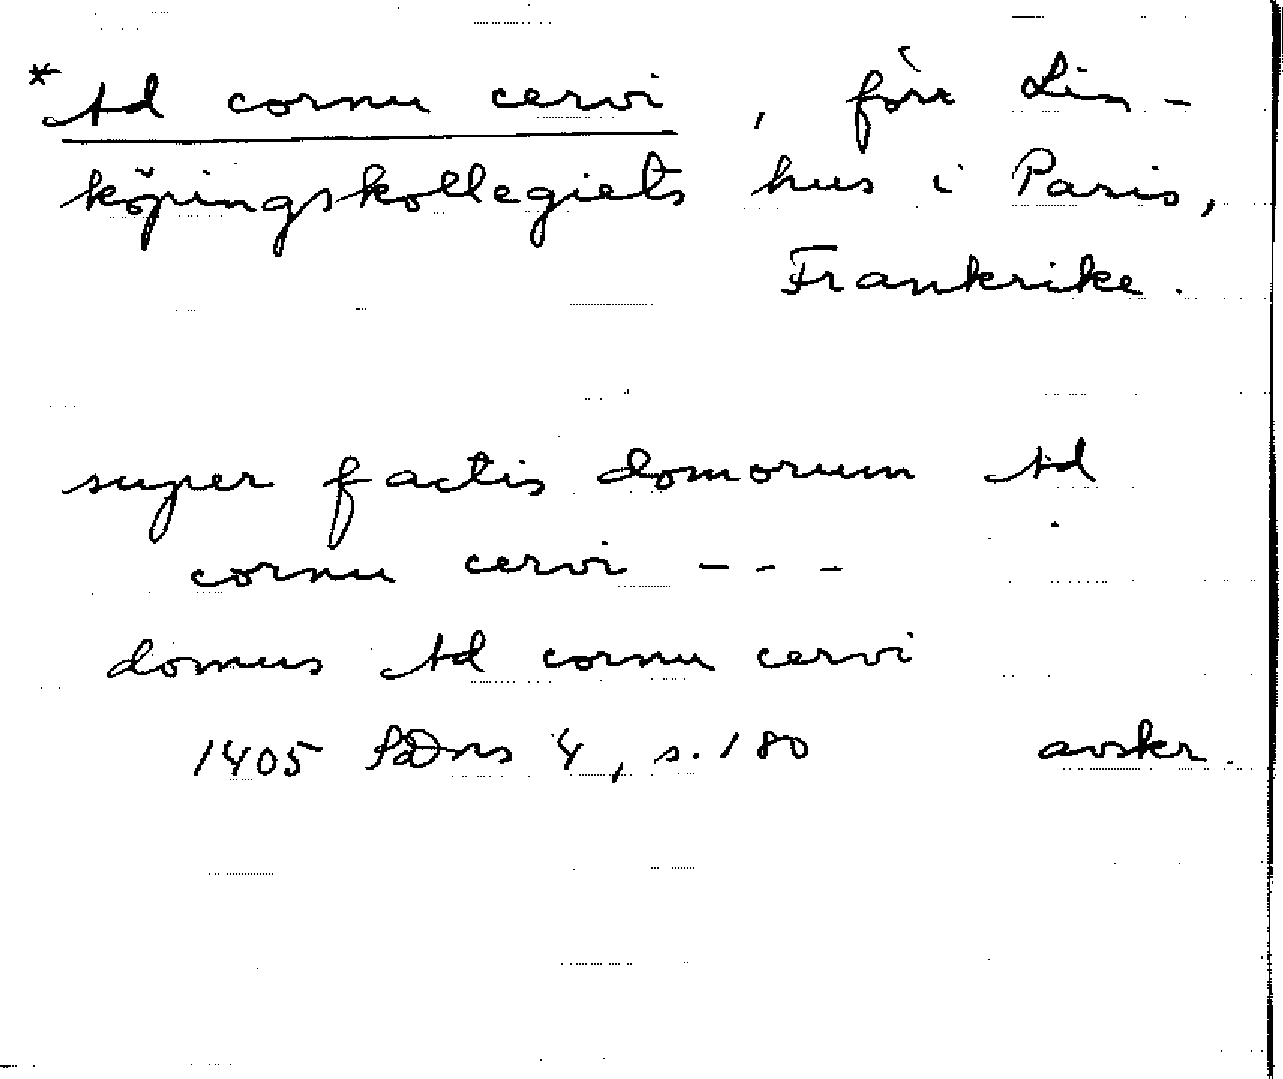 *Ad cornu cervi, förr Lin-
köpingskollegiets hus i Paris,
Frankrike.
super factis domorum Ad
cornu cervi - - -
domus Ad cornu cervi
1405 SDns 4, s. 180 avskr.